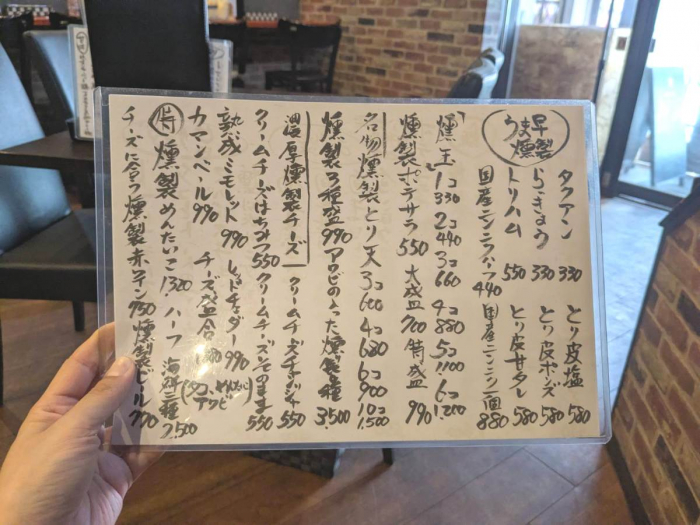 うま早
燻製
タクアン 330 とり皮塩 580
らっきょう 330 とり皮ポンズ 580
トリハム 550 とり皮甘タレ 580
国産ニンニクハーフ 440 国産ニンニク一個 880
「燻玉」 1コ 330 2コ 440 3コ 660 4コ 880 5コ 1,100 6コ 1,200
燻製ポテサラ 550 大盛 700 特盛 990
名物燻製とり天 3コ 600 4コ 680 6コ 900 10コ 1,500
燻製3種盛 990 アワビの入った燻製 種 3,500
濃厚燻製チーズ クリームチーズ 550
クリームチーズはちみつ 550 クリームチーズそのまま 550
熟成ミモレット 990 レッドチェダー 990
カマンベール 990 チーズ盛合
特 燻製めんたいこ 1320・ハーフ 海鮮三種 2,500
アワビ
チーズに合う燻製赤ワイン 750 燻製ビール 770